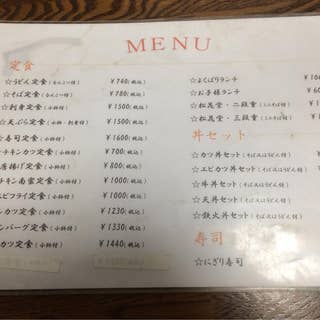 MENU
定食
☆うどん定食(おんこつ付) ¥740(税込)
☆そば定食(おんこつ付) ¥780(税込)
☆刺身定食(小鉢付) ¥1500(税込)
☆天ぷら定食(小鉢・刺身付) ¥1500(税込)
☆寿司定食 ¥1600(税込)
チキンカツ定食(小鉢付) ¥700(税込)
唐揚げ定食(小鉢付) ¥800(税込)
チキン南蛮定食(小鉢付) ¥1000(税込)
エビフライ定食(小鉢付) ¥1000(税込)
ンカツ定食(小鉢付) ¥1230(税込)
ンバーグ定食(小鉢付) ¥1330(税込)
カツ定食(小鉢付) ¥1440(税込)
☆よくばりランチ
☆お子様ランチ
☆松花堂・二段重(ミニそば付)
☆松花堂・三段重(ミニそば付)
丼セット
☆カツ丼セット(そば又はうどん付)
☆エビカツ丼セット(そば又はうどん付)
☆牛丼セット(そば又はうどん付)
☆天丼セット(そば又はうどん付)
☆鉄火丼セット(そば又はうどん付)
寿司
☆にぎり寿司